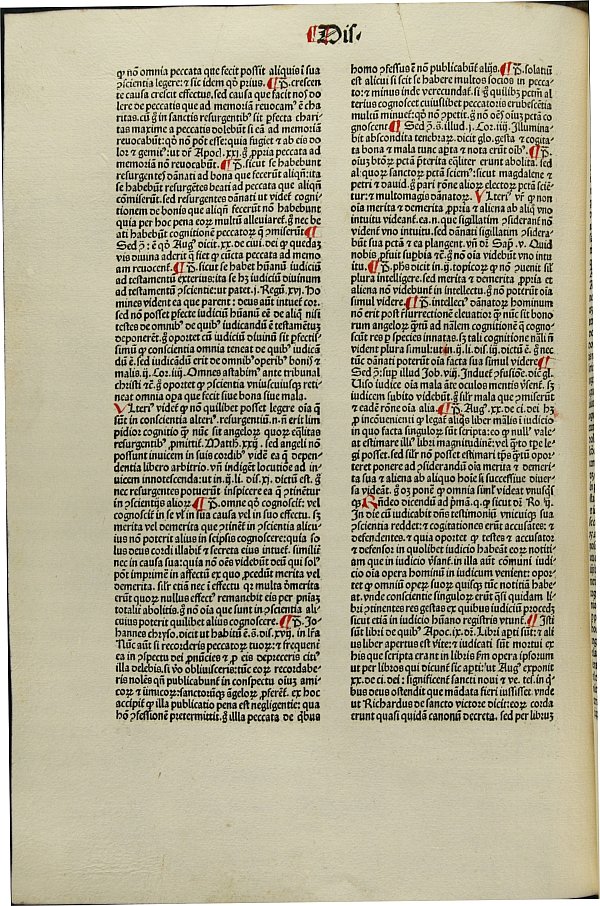 ¶ Dis.
ꝙ nõ omnia peccata que fecit possit aliquis ĩ sua
ↄscientia legere: ⁊ sic idem qđ prius. ¶ P̃. crescen
te causa crescit effectus. sed causa que facit nos do
lere de peccatis que ad memoriã reuocam᷒ ẽ cha
ritas. cũ g̊ in sanctis resurgentib᷒ sit ꝑfecta chari-
tas maxime a peccatis dolebũt si eã ad memoriã
reuocabũt: qđ nõ põt esse: quia fugiet ⁊ ab eis do
lor ⁊ gemit᷒: ut dr̃ Apocl̃. xxj. g̊ ꝓpria peccata ad
memoriã nõ reuocabũt. ¶ P̃. sicut se habebunt
resurgentes dãnati ad bona que fecerũt aliqñ: ita
se habebũt resurgẽtes beati ad peccata que aliqñ
cõmiserũt. sed resurgentes dãnati ut videt᷒ cogni
tionem de bonis que aliqñ fecerunt nõ habebunt
quia per hoc pena eoꝝ multũ alleuiaret᷒. g̊ nec be
ati habebũt cognitionẽ peccatoꝝ q̃ ↄmiserũt ¶
Sed ↄ: ẽ qđ Aug᷒ dicit. xx. de ciui. dei ꝙ quedaꝫ
vis diuina aderit q̃ fiet ꝙ cũcta peccata ad memo
am reuocent᷒. ¶ P̃. sicut se habet humanũ iudiciũ
ad testamentũ exterius: ita se hꝫ iudiciũ diuinum
ad testamentũ ↄscientie: ut patet. j. Regũ. xvj. Ho
mines vident ea que parent: deus aũt intuet᷒ cor.
sed nõ posset ꝑfecte iudiciũ hũanũ eẽ de aliq̊ nisi
testes de omnib᷒ de quib᷒ iudicandũ ẽ testamẽtuꝫ
deponerẽt. g̊ oportet cũ iudiciũ diuinũ sit ꝑfectis-
simũ ꝙ ↄscientia omnia teneat de quib᷒ iudicã
dũ ẽ. sed iudicãdũ erit de omnib᷒ operib᷒ bonis ⁊
malis. ij. Coꝝ. iiij. Omnes astabim᷒ ante tribunal
christi ⁊c̃. g̊ oportet ꝙ ↄscientia vniuscuiusqꝫ reti-
neat omnia opa que fecit siue bona siue mala.
Vlteri᷒ videt᷒ ꝙ nõ quilibet posset legere oĩa q̃
sũt in conscientia alteri᷒. resurgentiũ. n. nõ erit lim
pidior cognitio q̃ nũc sit angeloꝝ quoꝝ eq̃litas
resurgentib᷒ ꝓmittit᷒. Matth. xxij. sed angeli nõ
possunt inuicem in suis cordib᷒ vidẽ ea q̃ depen-
dentia libero arbitrio. vñ indigẽt locutiõe ad in-
uicem innotescenda: ut in. ij. li. dis. xj. dictũ est. g̊
nec resurgentes poterunt inspicere ea q̃ ↄtinẽtur
in ↄscientijs alioꝝ ¶ P̃. omne qđ cognoscit᷒: vel
cognoscit᷒ in se vl̃ in sua causa vel in suo effectu. sꝫ
merita vel demerita que ↄtinẽt᷒ in ↄscientia alicu
ius nõ poterit alius in seipsis cognoscere: quia so
lus deus cordi illabit᷒ ⁊ secreta eius intuet᷒. similit̃
nec in causa sua: quia nõ oẽs videbũt deũ qui sol᷒
põt imprimẽ in affectũ ex quo ꝓcedũt merita vel
demerita. silr̃ etiã nec ĩ effectu qꝛ multa ðmerita
erũt quoꝝ nullus effect᷒ remanebit eis per pñiaꝫ
totalit̃ abolitis. g̊ nõ oĩa que sunt in ↄscientia ali
cuius poterit quilibet alius cognoscere. ¶ P̃. Jo-
hannes chryso. dicit ut habitũ ẽ. s̃. dis. xvij. in lr̃a
Nũc aũt si recorderis peccatoꝝ tuoꝝ: ⁊ frequent̃
ea in ↄspectu dei ꝓnũcies ⁊ ꝓ eis depreceris citi᷒
illa delebis. si ṽo obliuisceris: tũc eoꝝ recordabe
ris nolẽs qñ publicabunt᷒ in conspectu oĩuꝫ ami
coꝝ ⁊ inimicoꝝ: sanctorũqꝫ ãgeloꝝ ꝓferẽt᷒. ex hoc
accipit᷒ ꝙ illa publicatio pena est negligentie: qua
hõ ↄfessionẽ pretermittit. g̊ illa peccata de q̃bus
homo ↄfessus ẽ nõ publicabũt᷒ alijs. ¶ P̃. solatiũ
est alicui si scit se habere multos socios in pecca-
to: ⁊ minus inde verecundat᷒. si g̊ quilibꝫ petm̃ al
terius cognoscet cuiuslibet peccatoris erubescẽtia
multũ minuet᷒: qđ nõ ↄpetit. g̊ nõ oẽs oĩuꝫ pctã co
gnoscent ¶ Sed ↄ. s̃. illud. j. Coꝝ. iiij. Illumina-
bit abscondita tenebraꝝ. dicit glo. gesta ⁊ cogita
ta bona ⁊ mala tunc apta ⁊ nota erũt oĩb᷒. ¶ P̃.
oĩuꝫ bõtoꝝ pctã ꝑterita eq̃liter erunt abolita. sed
al̃ quoꝝ sanctoꝝ pctã sciem᷒: sicut magdalene ⁊
petri ⁊ dauid. g̊ pari rõne alioꝝ electoꝝ pctã sciẽ-
tur: ⁊ multomagis dãnatoꝝ. Vlteri᷒ vr̃ ꝙ non
oĩa merita ⁊ demerita ꝓpria ⁊ aliena ab aliq̊ vno
intuitu videant᷒. ea. n. que sigillatim ↄsiderant᷒ nõ
vident᷒ vno intuitu. sed dãnati sigillatim ↄsidera-
bũt sua pctã ⁊ ea plangent. vñ dr̃ Sap̃. v. Quid
nobis ꝓfuit supbia ⁊c̃. g̊ nõ oĩa videbũt vno intu
itu. ¶ P̃. phs dicit in. ij. topicoꝝ ꝙ nõ ↄuenit sil᷒
plura intelligere. sed merita ⁊ demerita ꝓpria et
aliena nõ videbunt᷒ in intellectu. g̊ nõ poterũt oĩa
simul videre ¶ P̃. intellect᷒ dãnatoꝝ hominum
nõ erit post r̃surrectionẽ eleuatioꝝ q̃ nũc sit bono
rum angeloꝝ q̃tũ ad nãlem cognitionẽ q̃ cogno-
scũt res ꝑ species innatas. sꝫ tali cognitione nãli ñ
vident plura simul: ut in. ij. li. dis. iij. dictũ ẽ. g̊ nec
tũc dãnati poterũt oĩa facta sua simul videre ¶
Sed ↄ: sup illud Job. viij. Induẽt᷒ ↄfusiõe. dic̃ gl̃.
Uiso iudice oĩa mala ãte oculos mentis vsent᷒. sꝫ
iudicem subito videbũt. g̊ silr̃ mala que ↄmiserũt
⁊ eadẽ rõne oĩa alia ¶ P̃. Aug᷒. xx. de ci. dei hꝫ
ꝓ incõuenienti ꝙ legat᷒ aliq̊s liber mãlis ĩ iudicio
in quo facta singuloꝝ sũt scripta: eo ꝙ null᷒ vale
at estimare illi᷒ libri magnitudinẽ: vel q̃to tpe le-
gi posset. sed silr̃ nõ posset estimari tp̃s q̃tũ opor-
teret ponere ad ↄsiderandũ oĩa merita ⁊ demeri-
ta sua ⁊ aliena ab aliquo hoĩe si successiue diuer-
sa videãt. g̊ oꝫ ponẽ ꝙ omnia siml̃ videat vnusq̃s
qꝫ. Rñdeo dicendũ ad pmã. q. ꝙ sicut dr̃ Ro. ij.
In die cũ iudicabit dñs testimoniũ vnicuiqꝫ sua
ↄscientia reddet: ⁊ cogitationes erũt accusãtes: ⁊
defendentes. ⁊ quia oportet ꝙ testes ⁊ accusator
⁊ defensor in quolibet iudicio habeãt eoꝝ notici-
am que in iudicio v̾sant᷒. in illa aũt cõmuni iudi-
cio oĩa opera hominũ in iudicium venient: opor-
tet ꝙ omniũ opeꝝ suoꝝ quisqꝫ tũc notitiã habe-
at. vnde conscientie singuloꝝ erũt q̃si quidam li-
bri ↄtinentes res gestas ex quibus iudiciũ ꝓcedꝫ
sicut etiã in iudicio hũano registris vtunt᷒. ¶ Isti
sũt libri de quib᷒ Apoc. ix. dr̃. Libri apti sũt: ⁊ ali
us liber apertus est vite: ⁊ iudicati sũt mortui ex
his que scripta erant in libris s̃m opera ipsorum
ut per libros qui dicunt᷒ sic apti: ut Aug᷒ exponit
xx. de ci. dei: significent᷒ sancti noui ⁊ ve. tes. in q̃-
bus deus ostendit que mãdata fieri iussisset. vnde
ut Richardus de sancto victore dicit: eoꝝ corda
erunt quasi quidã canonũ decreta. sed per libruꝫ